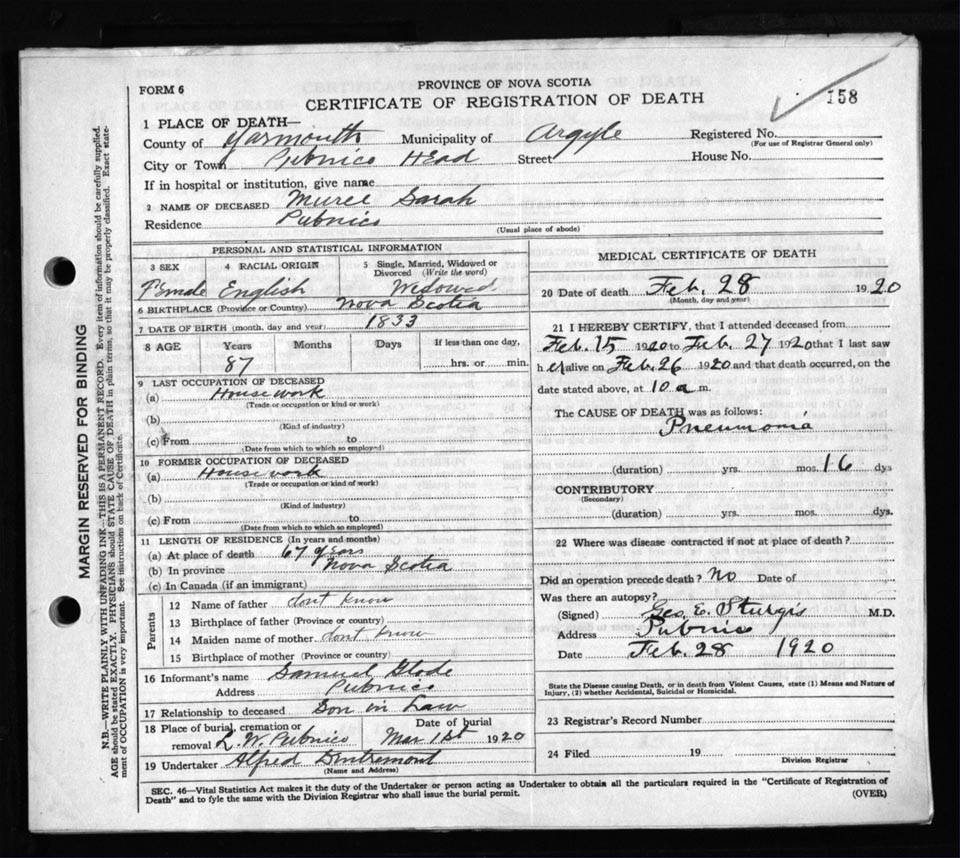 PROVINCE OF NOVA SCOTIA
FORM 6
CERTIFICATE OF REGISTRATION OF DEATH
158
1 PLACE OF DEATH—
County of Yarmouth Municipality of Argyle Registered No.
(For use of Registrar General only)
City or Town Pubnico Head Street House No.
If in hospital or institution, give name
2 NAME OF DECEASED Sarah
Residence Pubnico
(Usual place of abode)
PERSONAL AND STATISTICAL INFORMATION
3 SEX 4 RACIAL ORIGIN 5 Single, Married, Widowed or Divorced (Write the word)
Female English Widowed
6 BIRTHPLACE (Province or Country) Nova Scotia
7 DATE OF BIRTH (month, day and year) 1833
8 AGE Years Months Days If less than one day,
87 hrs. or min.
9 LAST OCCUPATION OF DECEASED
(a) Housework
(Trade or occupation or kind or work)
(b)
(Kind of industry)
(c) From to
(Date from which to which so employed)
10 FORMER OCCUPATION OF DECEASED
(a) Housework
(Trade or occupation or kind of work)
(b)
(Kind of industry)
(c) From to
(Date from which to which so employed)
11 LENGTH OF RESIDENCE (In years and months)
(a) At place of death 67 years
(b) In province Nova Scotia
(c) In Canada (if an immigrant)
Parents
12 Name of father dont know
13 Birthplace of father (Province or country)
14 Maiden name of mother dont know
15 Birthplace of mother (Province or country)
16 Informant's name Samuel Glode
Address Pubnico
17 Relationship to deceased Son in Law
18 Place of burial, cremation or removal L. W. Pubnico
Date of burial Mar 1st 1920
19 Undertaker Alfred Dentremont
(Name and Address)
MEDICAL CERTIFICATE OF DEATH
20 Date of death Feb. 28 1920
(Month, day and year)
21 I HEREBY CERTIFY, that I attended deceased from
Feb. 15 1920 to Feb. 27 1920 that I last saw
her alive on Feb. 26 1920 and that death occurred, on the
date stated above, at 10 a m.
The CAUSE OF DEATH was as follows:
Pneumonia
(duration) yrs. mos. 16 dys
CONTRIBUTORY
(Secondary)
(duration) yrs. mos. dys.
22 Where was disease contracted if not at place of death?
Did an operation precede death? No Date of
Was there an autopsy?
(Signed) Geo. E. Sturgis M.D.
Address Pubnico
Date Feb. 28 1920
State the Disease causing Death, or in death from Violent Causes, state (1) Means and Nature of
Injury, (2) whether Accidental, Suicidal or Homicidal.
23 Registrar's Record Number
24 Filed 19
Division Registrar
SEC. 46—Vital Statistics Act makes it the duty of the Undertaker or person acting as Undertaker to obtain all the particulars required in the "Certificate of Registration of
Death" and to fyle the same with the Division Registrar who shall issue the burial permit.
(OVER)
MARGIN RESERVED FOR BINDING
N.B.—WRITE PLAINLY WITH UNFADING INK—THIS IS A PERMANENT RECORD. Every item of information should be carefully supplied.
AGE should be stated EXACTLY. PHYSICIANS should STATE CAUSE OF DEATH in plain terms, so that it may be properly classified. Exact state-
ment of OCCUPATION is very important. See instructions on back of Certificate.